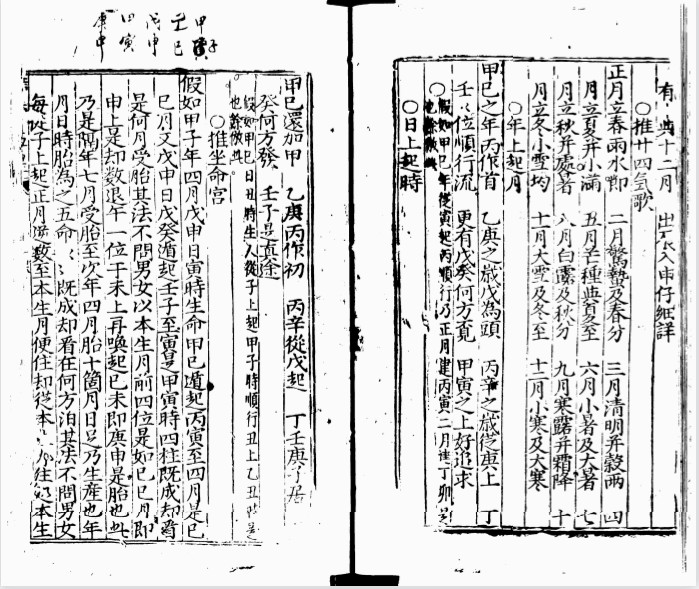 有 典十二月 出 入串仔細詳
○推廿四氣歌
正月立春雨水節 二月驚蟄及春分 三月清明并穀雨 四
月立夏并小滿 五月芒種與夏至 六月小暑及大暑 七
月立秋并處暑 八月白露及秋分 九月寒露并霜降 十
月立冬小雪均 十一月大雪及冬至 十二月小寒及大寒
○年上起月
甲己之年丙作首 乙庚之歲戊為頭 丙辛之歲從庚上 丁
壬 位順行流 更有戊癸何方覓 甲寅之上好追求
○假如甲己年從寅起丙順行乃正月建丙寅二月建丁卯是
也餘倣此
○日上起時
甲己還加甲 乙庚丙作初 丙辛從戊起 丁壬庚子居
癸何方發 壬子是真途
假如甲己日丑時生人從子上起甲子時順行丑上乙丑時是
也餘倣此
○推坐命宮
假如甲子年四月戊申日寅時生命甲己遁起丙寅至四月是己
巳月又戊申日戊癸遁起壬子至寅是甲寅時四柱既成却看
是何月受胎其法不問男女以本生月前四位是如己巳月即
申上是却數退午一位于未上再喚起己未即庚申是胎也此
乃是隔年七月受胎至次年四月胎十箇月日足乃生產也年
月日時胎為之五命 既成却看在何方泊其法不問男女
每從子上起正月逆數至本生月便住却從本 住 本生
甲子
壬
戊申
寅
庚申